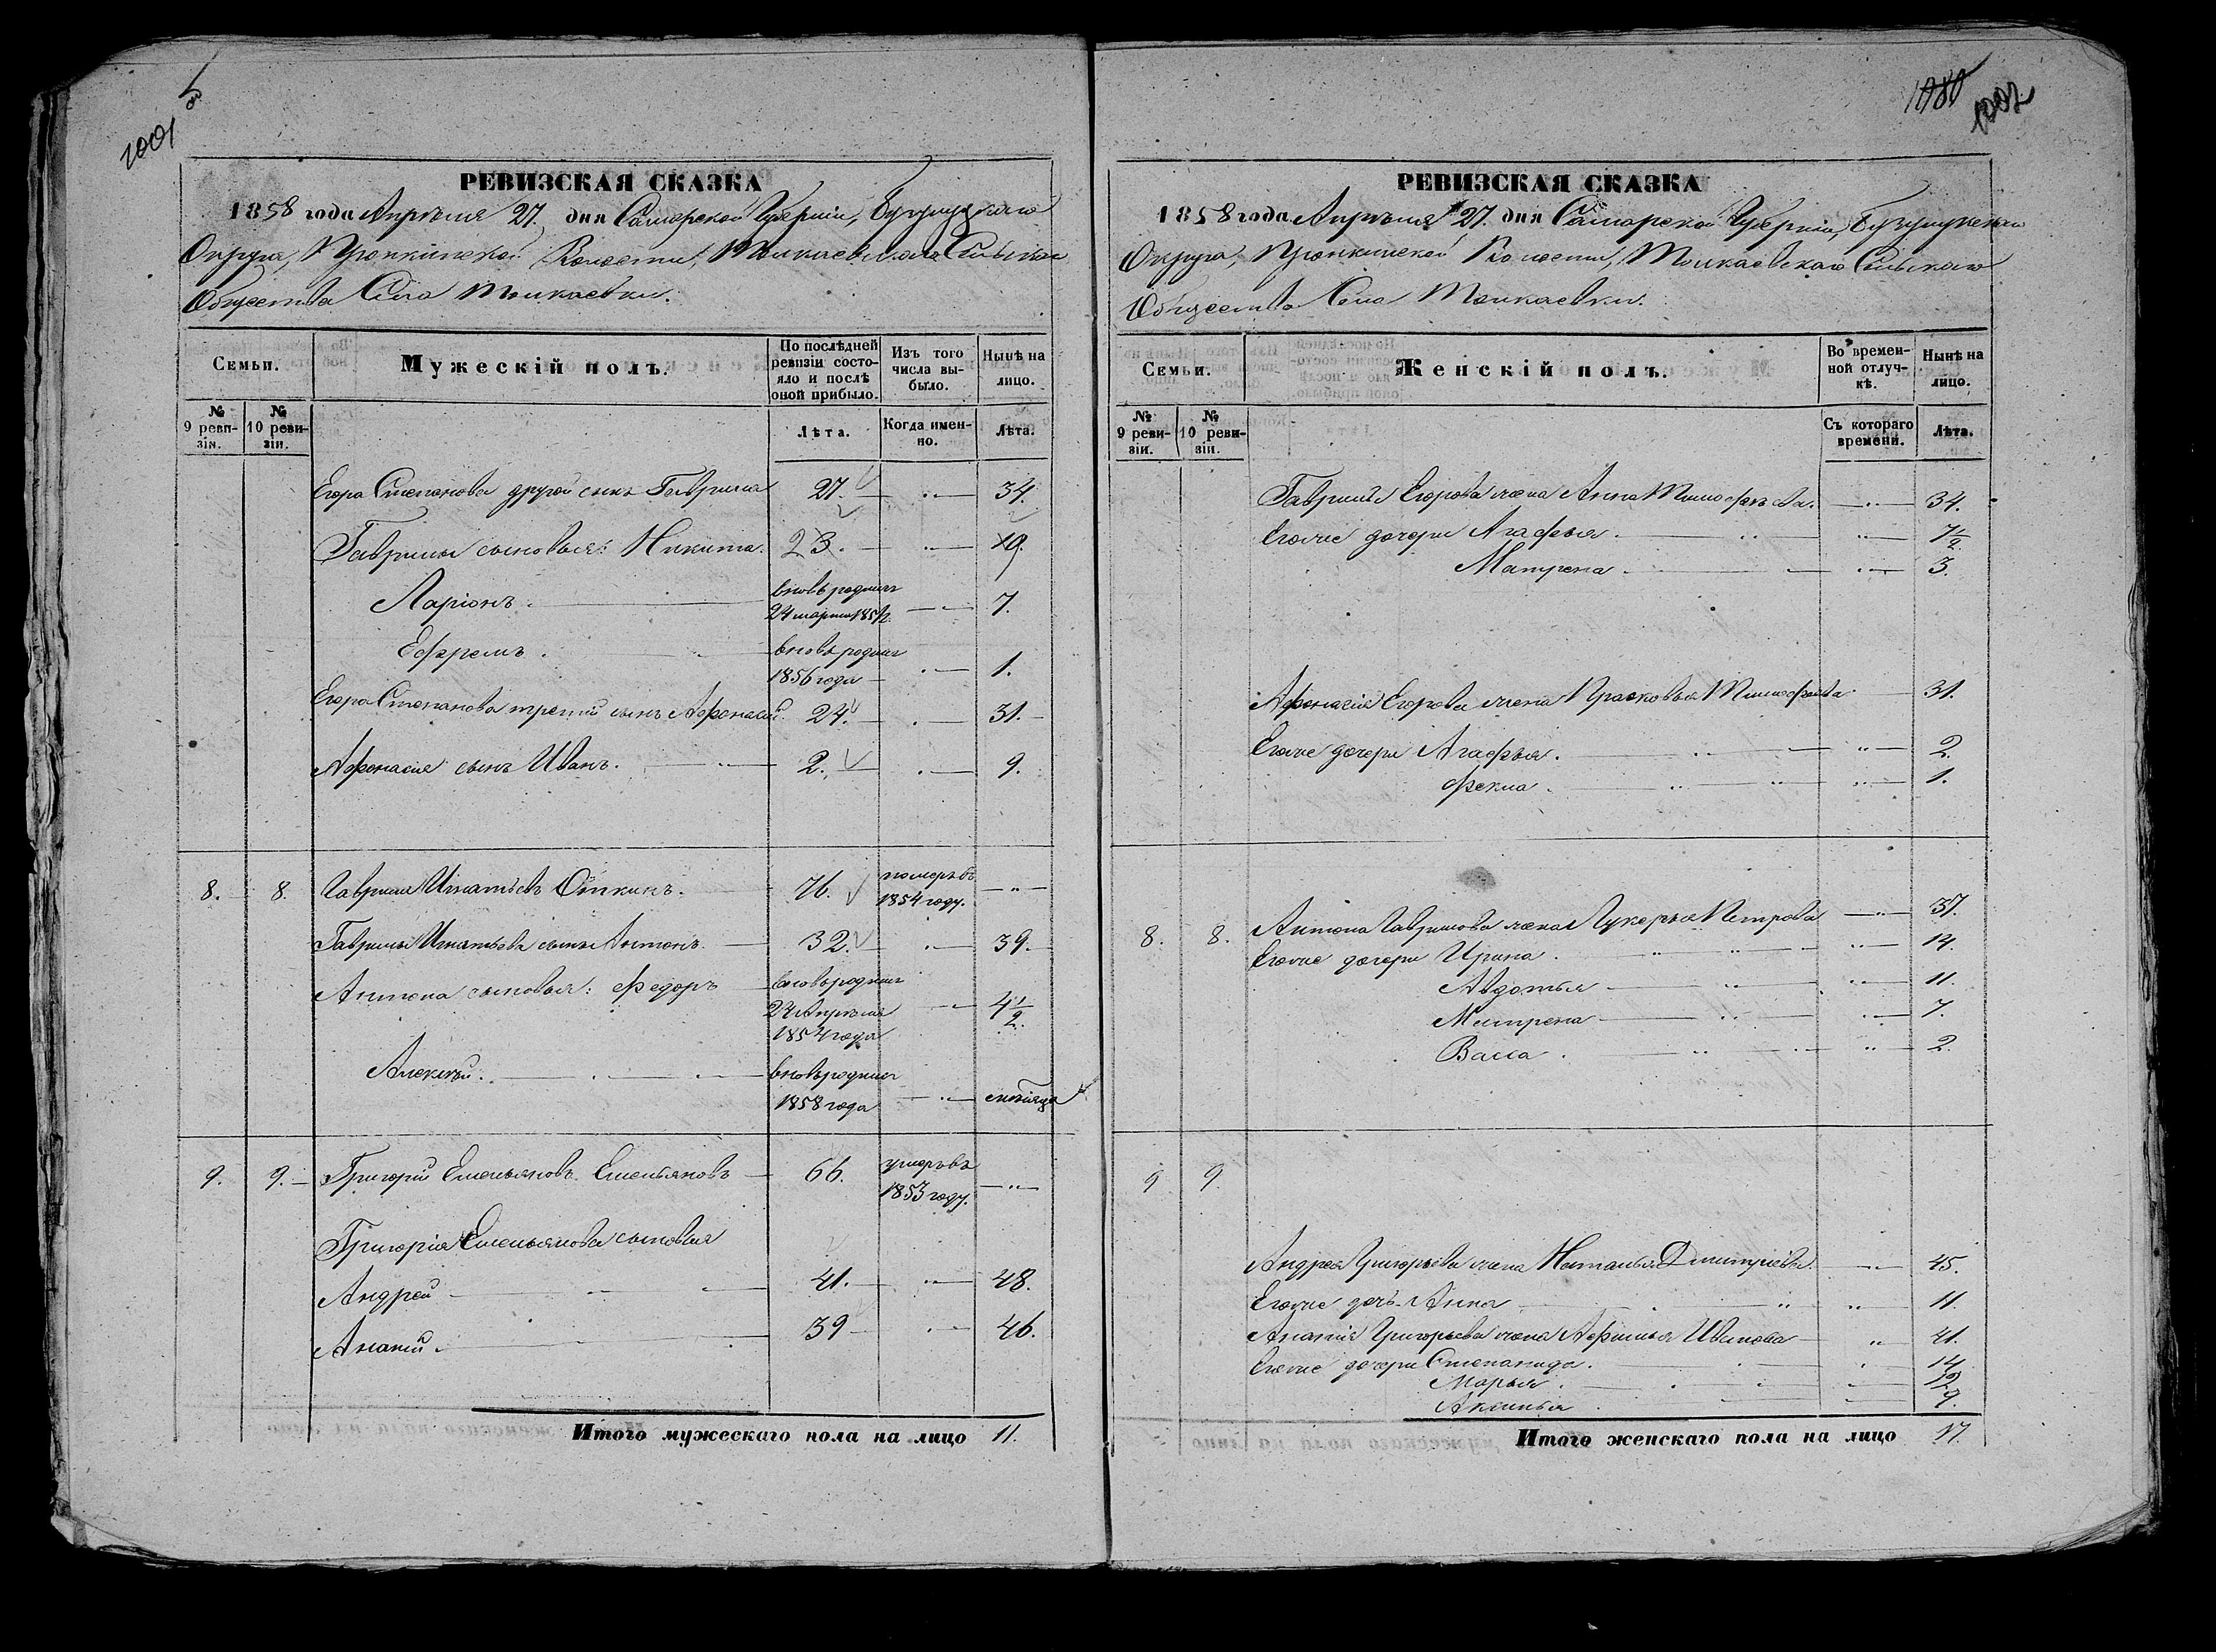 5
об
1001
РЕВИЗСКАЯ СКАЗКА
1858 года Апрѣля 27. дня Самарской Губерніи, Бузулукскаго
Округа, Пронькинской Волости, Толкаевскаго Сельскаго
Общества Села Толкаевки.
Семьи.
Мужескій полъ.
По послѣдней ревизіи состояло и послѣ оной прибыло.
Изъ того числа выбыло.
Нынѣ на лицо.
№ 9 ревизіи.
№ 10 ревизіи.
Лѣта.
Когда именно.
Лѣта.
Егора Степанова другой сынъ Гаврила 27. 34.
Гаврилы сыновья: Никита. 23.
Ларіонъ. вновь рожден 24 марта 185 7.
Ефремъ. вновь рожден 1856 года 1.
Егора Степанова третій сынъ Афонасій 24. 31.
Афонасія сынъ Иванъ. 2. 9.
8. 8. Гаврила Игнатьевъ Откинъ. 76. померъ въ 1854 году.
Гаврилы Игнатьева сынъ Антонъ. 32. 39.
Антона сыновья: Федоръ вновь рожден Апрѣля 1854 года 4 1/2
Алексѣй. вновь рожден 1858 года мѣсяца
9. 9. Григорій Емельяновъ Емельяновъ 66. умеръ въ 1853 году.
Григорія Емельянова сыновья
Андрей 41. 48.
Ананій. 39 46.
Итого мужескаго пола на лицо 11.
1080
1002
РЕВИЗСКАЯ СКАЗКА
1858 года Апрѣля 27. дня Самарской Губерніи, Бузулукскаго
Округа, Пронькинской Волости, Толкаевскаго Сельскаго
Общества Села Толкаевки.
Семьи.
Женскій полъ.
Во временной отлучкѣ.
Нынѣ на лицо.
№ 9 ревизіи.
№ 10 ревизіи.
Съ котораго времени.
Лѣта.
Гаврилы Егорова жена Анна Тимофѣева. 34.
Егожъ дочери Агафья. 7 1/2
Матрена. 3.
Афонасія Егорова жена Прасковья Тимофѣева 31.
Егожъ дочери Агафья. 2.
Фекла. 1.
8. 8. Антона Гаврилова жена Лукерья Петрова 37.
Егожъ дочери Ирина. 14.
Авдотья 11.
Матрена 7.
Васса. 2.
9 9.
Андрея Григорьева жена Наталья Дмитріева. 45.
Егожъ дочь Анна 11.
Ананія Григорьева жена Афимья Иванова 41.
Егожъ дочери Степанида. 14
Марья. 12
Аксинья 9.
Итого женскаго пола на лицо 17.